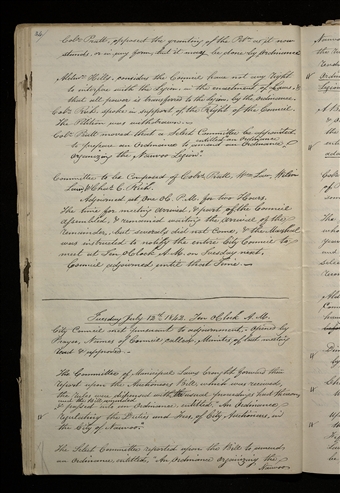 84
Col. Pratt, opposed the granting of the Petn. as it now
stands, or in any form, but it may be done by Ordinance.
Alderm. Hills, considers the Council have not any right
to interfere with the Legion, in the enactment of Laws, &
that all power is transferred to the Legion, by the Ordinance.
Col. Rich spoke in support of the Right of the Council.
The Petition was withdrawn.
Col. Pratt moved that a Select Committee be appointed
to prepare an Ordinance to amend an Ordinance,
entitled an Ordinance
organizing the Nauvoo Legion.
Committee to be Composed of Col. Pratt, Wm. Law, Wilson
Law, & Chas. C. Rich.
Adjourned at One o'C. P.M. for two Hours.
The time for meeting arrived, & part of the Council
assembled, & remained waiting the arrival of the
remainder, but several did not come, & the Marshal
was instructed to notify the entire City Council to
meet at Ten o'Clock A.M. on Tuesday next,
Council adjourned until that Time.
Tuesday July 12th. 1842. Ten o'Clock A.M.
City Council met pursuant to adjournment. Opened by
Prayer, Names of Council called, Minutes of last meeting
read & approved.
The Committee of Municipal Laws brought forward their
report upon the Auctioneers Bill, which was received,
the rules were dispensed with,
& passed into an Ordinance entitled, "An Ordinance
regulating the Duties and Fees, of City Auctioneers, in
the City of Nauvoo."
The Select Committee reported upon the Bill to amend
an Ordinance entitled, "An Ordinance organizing the
Nauvoo